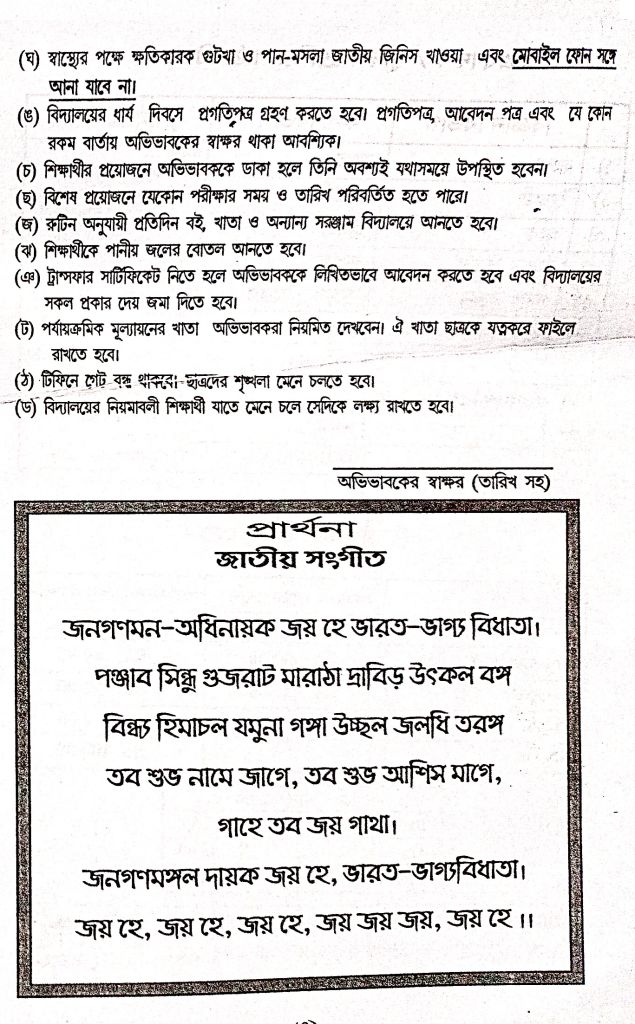 (ঘ) স্বাস্থ্যের পক্ষে ক্ষতিকারক গুটখা ও পান-মসলা জাতীয় জিনিস খাওয়া এবং মোবাইল ফোন সঙ্গে
আনা যাবে না।
(ঙ) বিদ্যালয়ের ধার্য দিবসে প্রগতিপত্র গ্রহণ করতে হবে। প্রগতিপত্র, আবেদন পত্র এবং যে কোন
রকম বার্তায় অভিভাবকের স্বাক্ষর থাকা আবশ্যিক।
(চ) শিক্ষার্থীর প্রয়োজনে অভিভাবককে ডাকা হলে তিনি অবশ্যই যথাসময়ে উপস্থিত হবেন।
(ছ) বিশেষ প্রয়োজনে যেকোন পরীক্ষার সময় ও তারিখ পরিবর্তিত হতে পারে।
(জ) রুটিন অনুযায়ী প্রতিদিন বই, খাতা ও অন্যান্য সরঞ্জাম বিদ্যালয়ে আনতে হবে।
(ঝ) শিক্ষার্থীকে পানীয় জলের বোতল আনতে হবে।
(ঞ) ট্রান্সফার সার্টিফিকেট নিতে হলে অভিভাবককে লিখিতভাবে আবেদন করতে হবে এবং বিদ্যালয়ের
সকল প্রকার দেয় জমা দিতে হবে।
(ট) পর্যায়ক্রমিক মূল্যায়নের খাতা অভিভাবকরা নিয়মিত দেখবেন। ঐ খাতা ছাত্রকে যত্নকরে ফাইলে
রাখতে হবে।
(ঠ) টিফিনে গেট বন্ধ থাকবে। ছাত্রদের শৃঙ্খলা মেনে চলতে হবে।
(ড) বিদ্যালয়ের নিয়মাবলী শিক্ষার্থী যাতে মেনে চলে সেদিকে লক্ষ্য রাখতে হবে।
অভিভাবকের স্বাক্ষর (তারিখ সহ)
প্রার্থনা
জাতীয় সংগীত
জনগণমন-অধিনায়ক জয় হে ভারত-ভাগ্য বিধাতা।
পঞ্জাব সিন্ধু গুজরাট মারাঠা দ্রাবিড় উৎকল বঙ্গ
বিন্ধ্য হিমাচল যমুনা গঙ্গা উচ্ছল জলধি তরঙ্গ
তব শুভ নামে জাগে, তব শুভ আশিস মাগে,
গাহে তব জয় গাথা।
জনগণমঙ্গল দায়ক জয় হে, ভারত-ভাগ্যবিধাতা।
জয় হে, জয় হে, জয় হে, জয় জয় জয়, জয় হে ।।